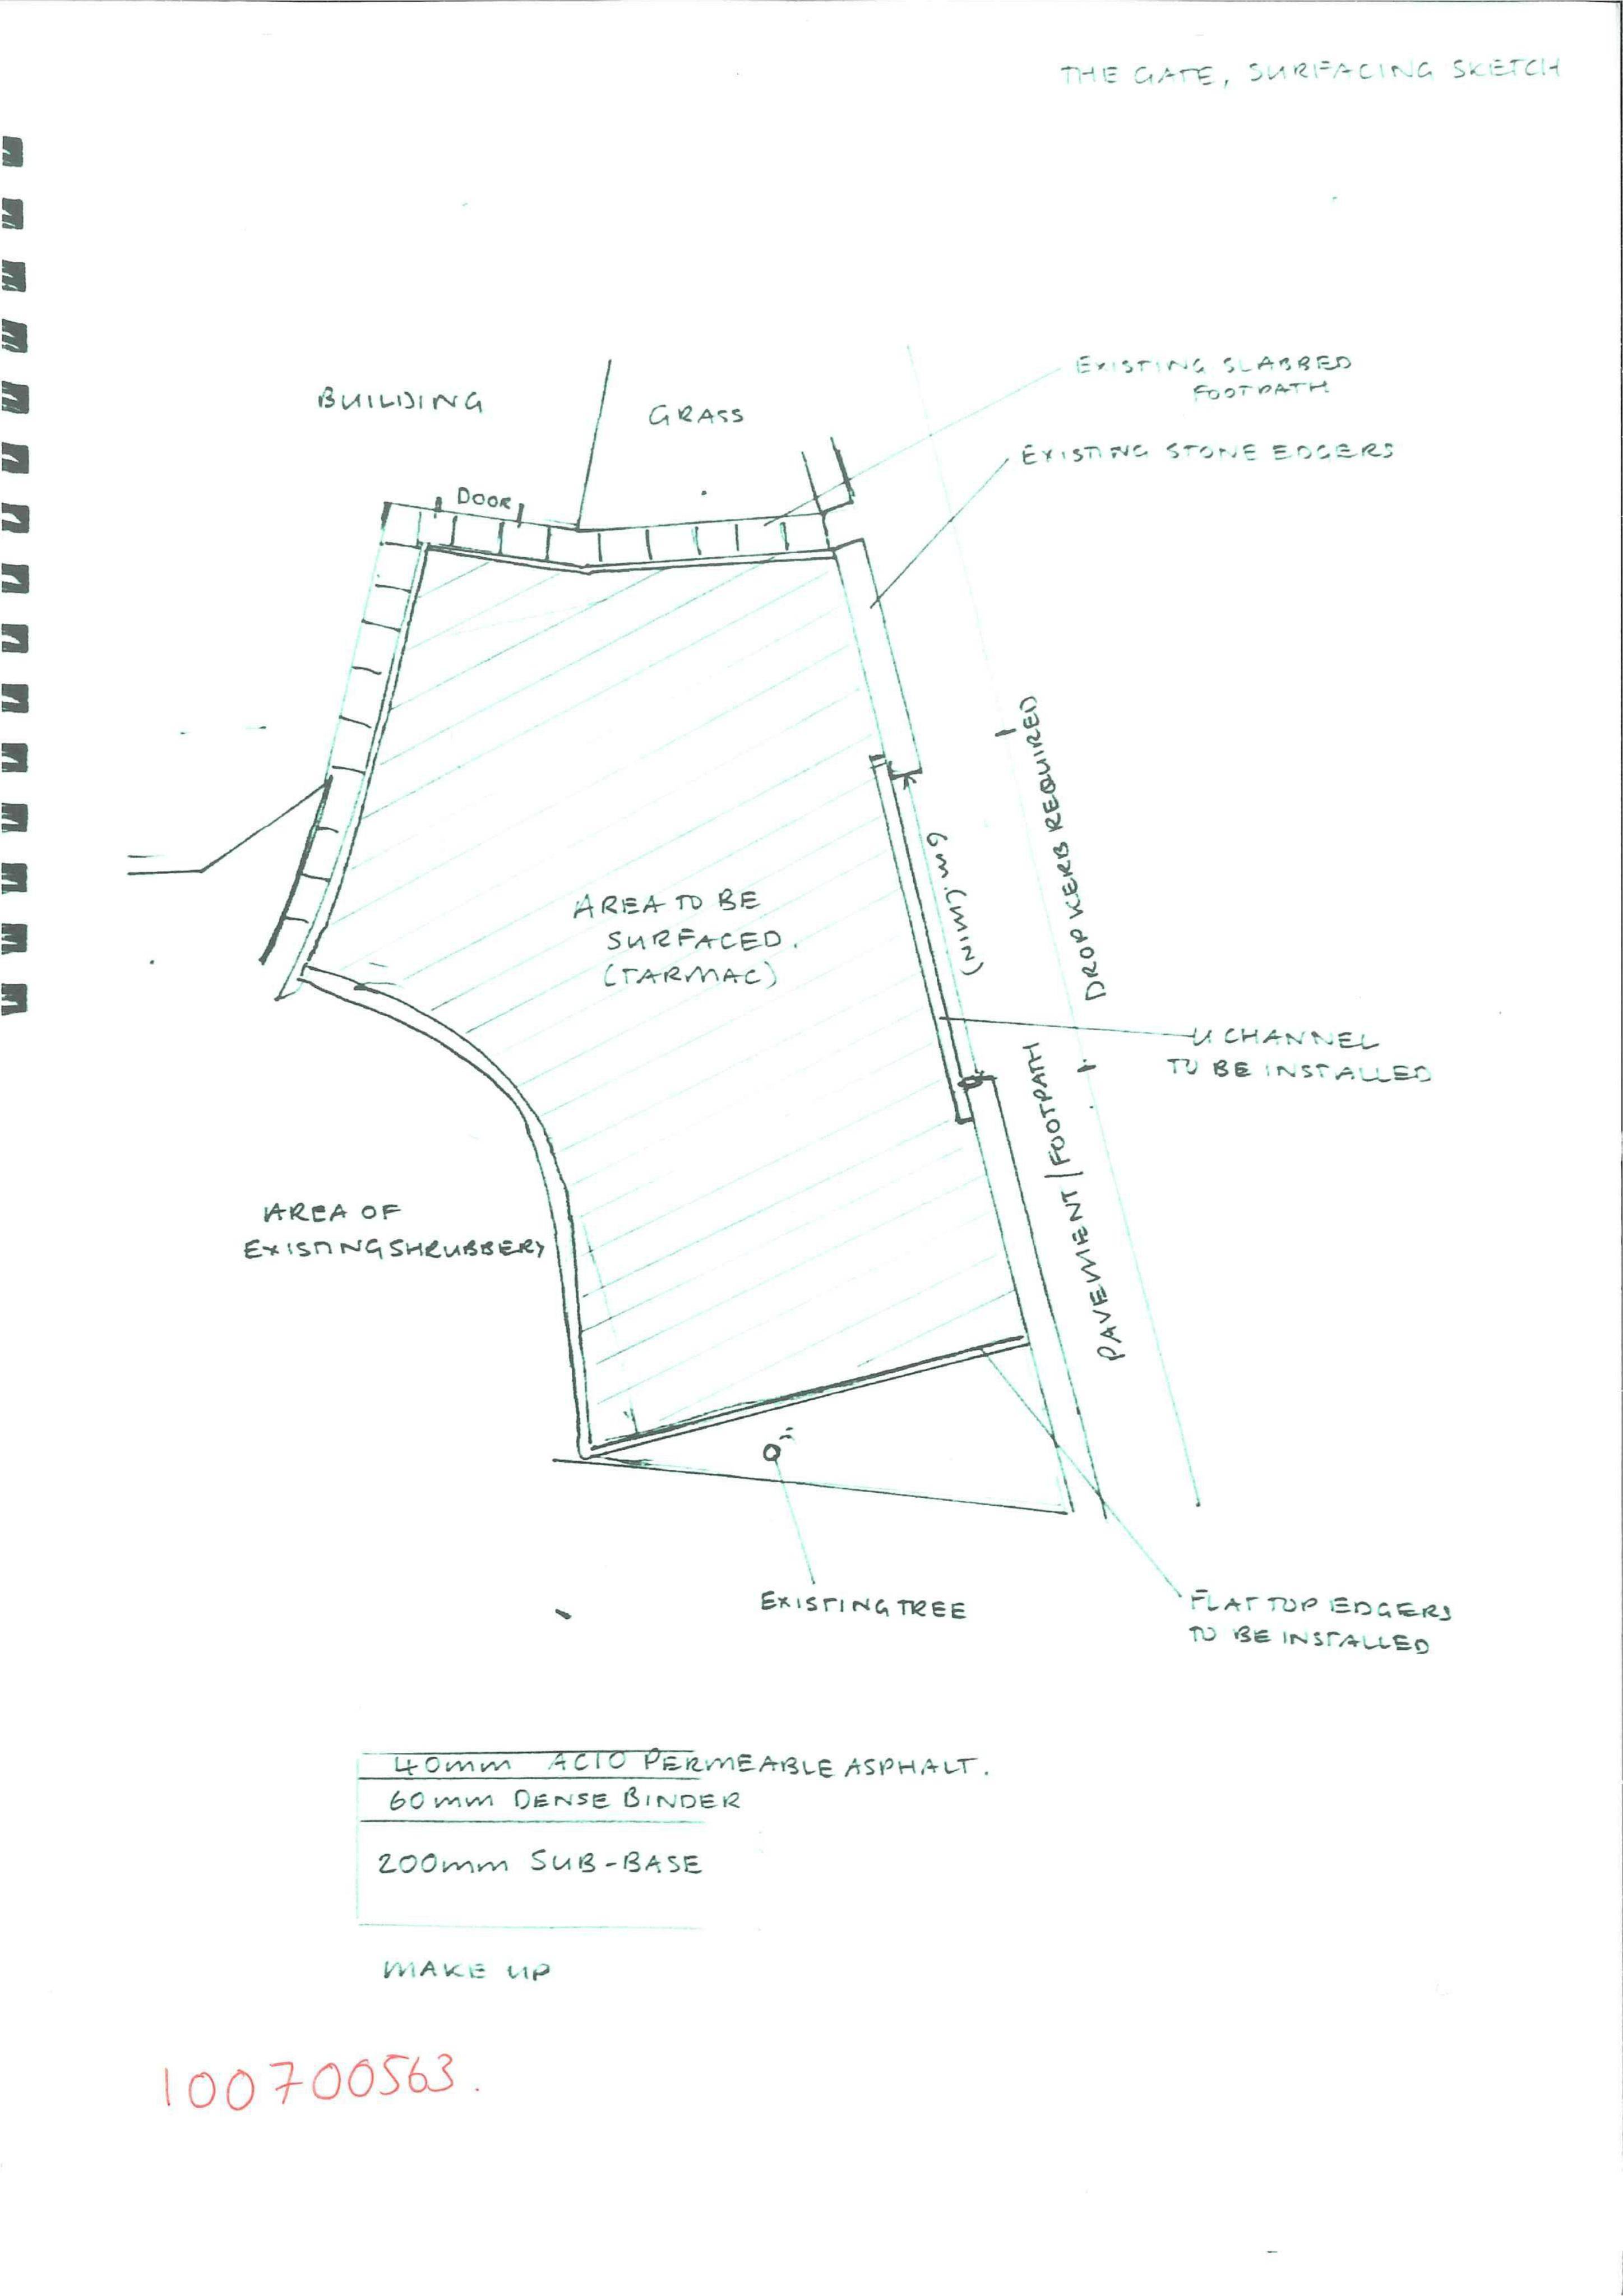 THE GATE, SURFACING SKETCH
EXISTING SLABBED
FOOTPATH
BUILDING
GRASS
EXISTING STONE EDGERS
DOOR
DROP KERB REQUIRED
6m (MIN)
AREA TO BE
SURFACED.
(TARMAC)
U CHANNEL
TO BE INSTALLED
PAVEMENT/FOOTPATH
AREA OF
EXISTING SHRUBBERY
EXISTING TREE
FLAT TOP EDGERS
TO BE INSTALLED
40mm AC10 PERMEABLE ASPHALT.
60mm DENSE BINDER
200mm SUB-BASE
MAKE UP
100700563.